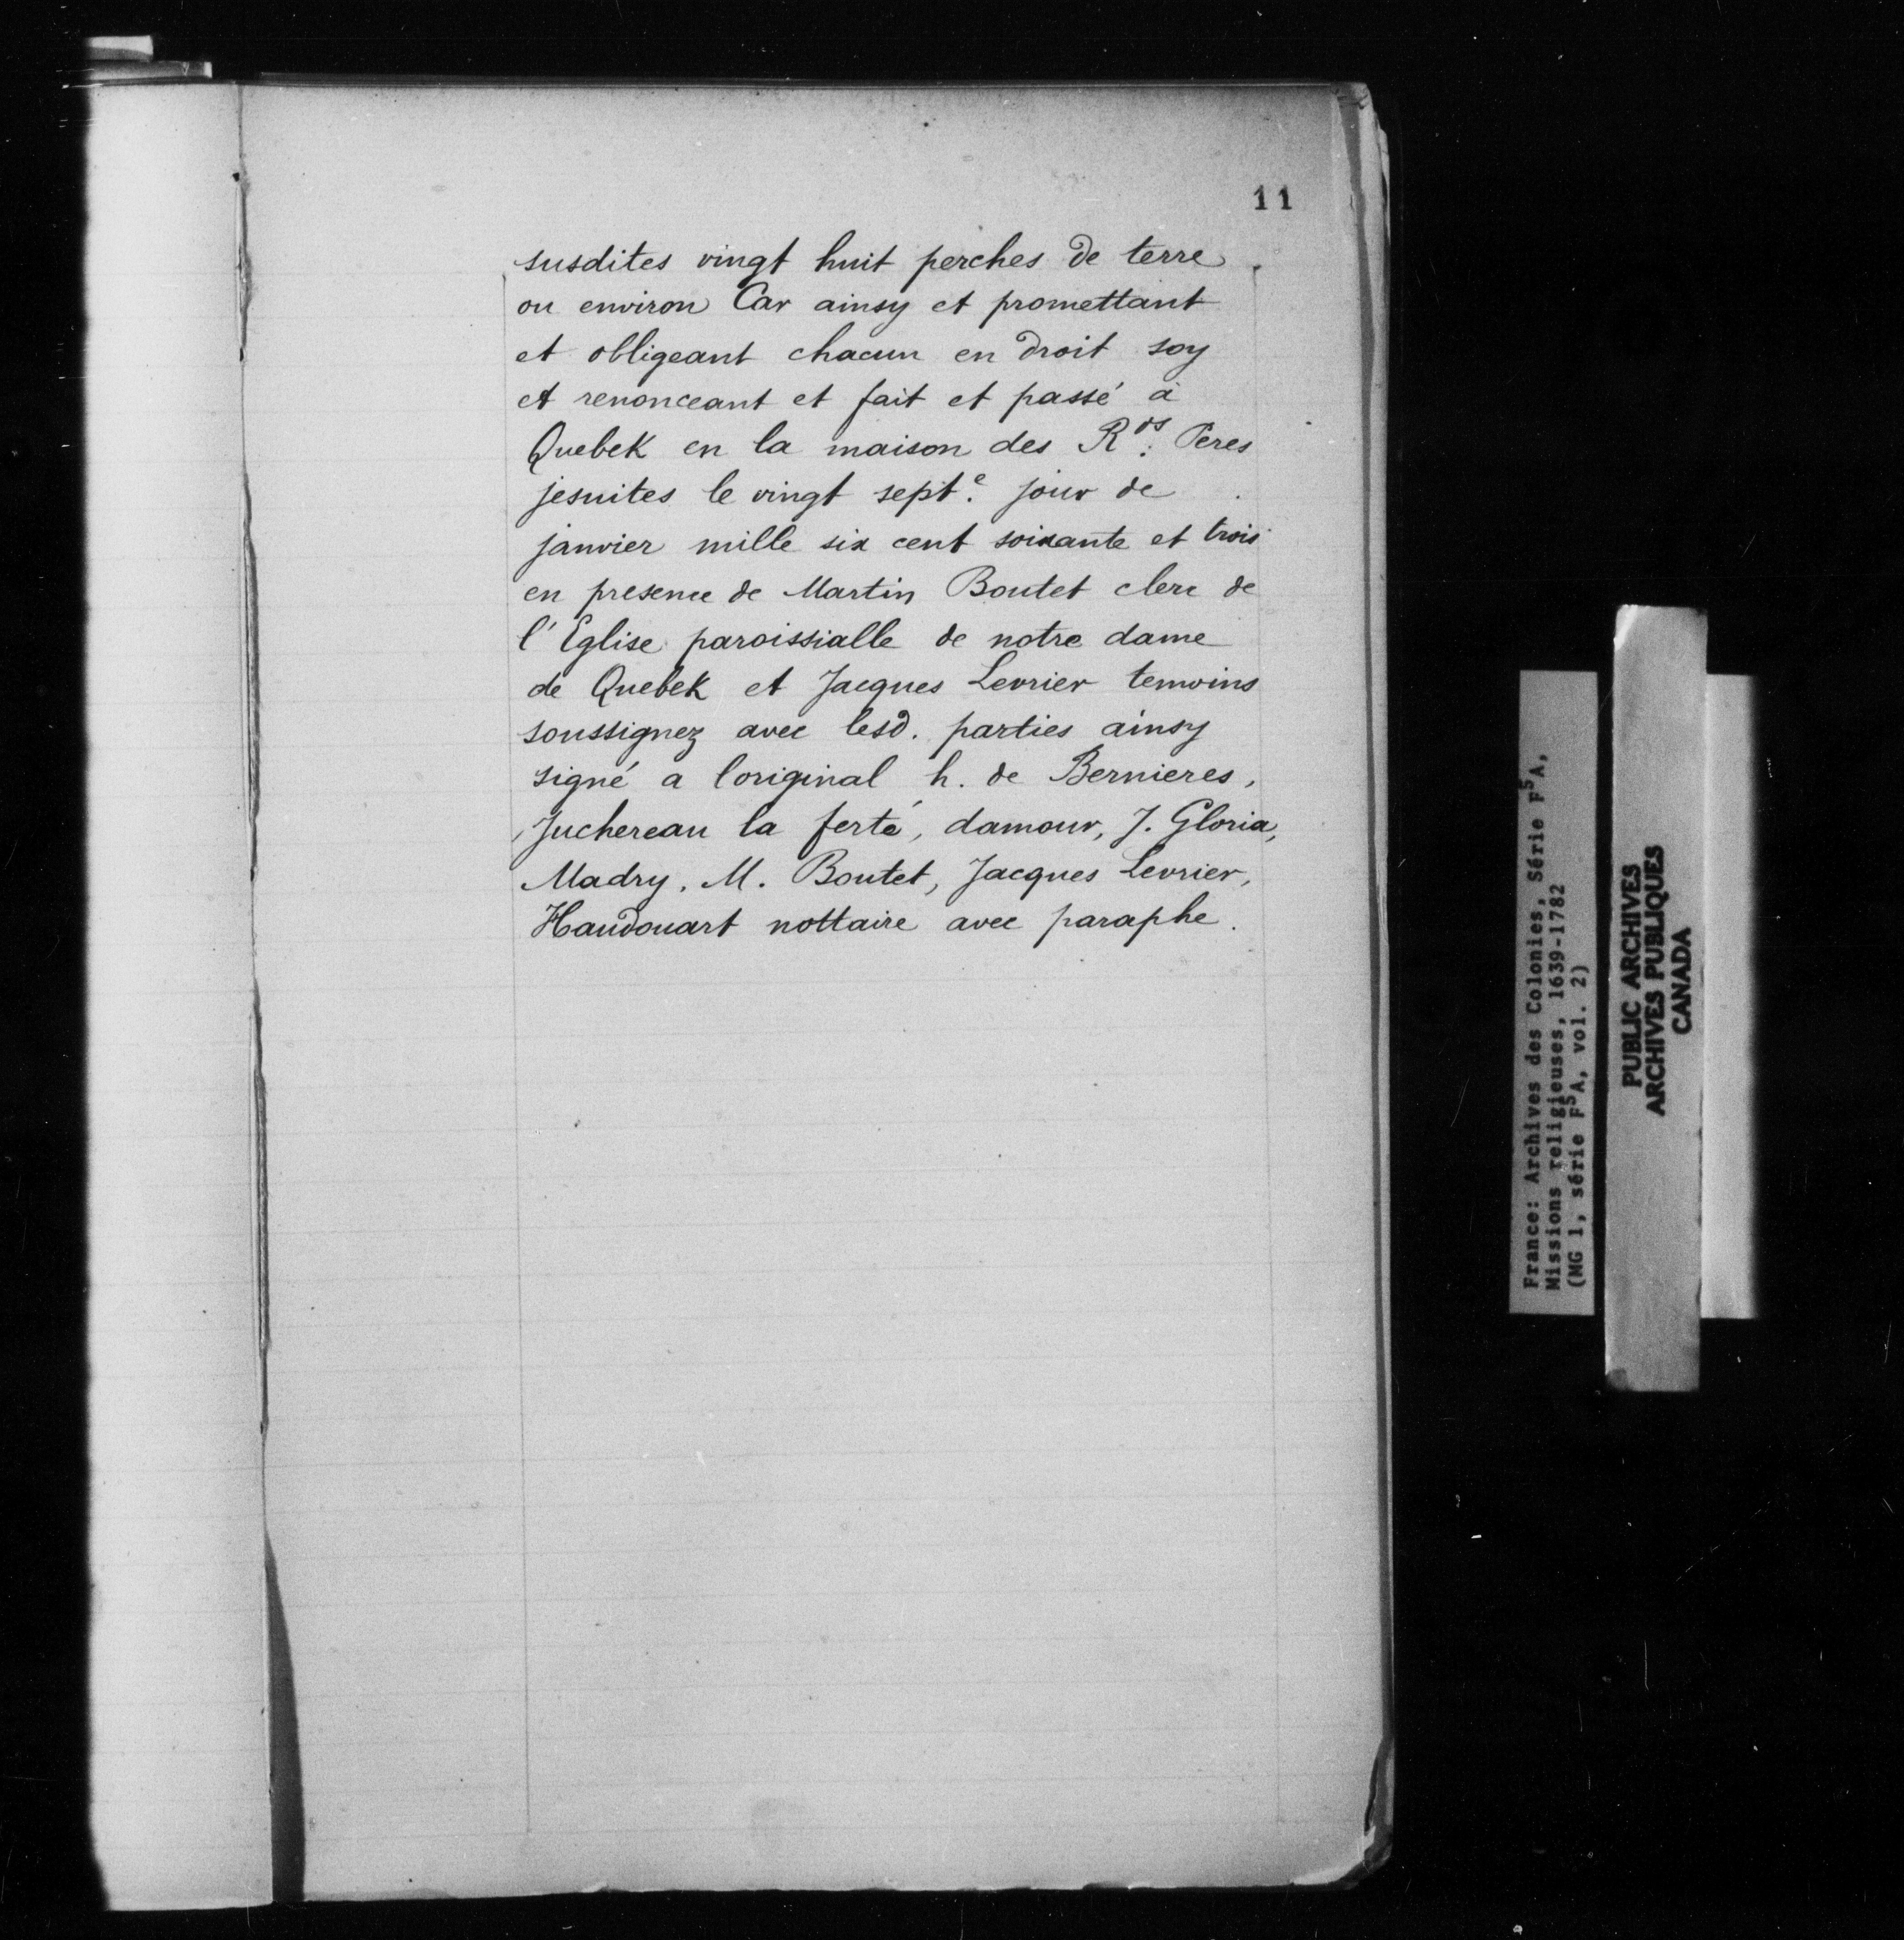 11
susdites vingt huit perches de terre
ou environ Car ainsy et promettant
et obligeant chacun en droit soy
et renonceant et fait et passé à
Quebek en la maison des Rds. Peres
jesuites le vingt septe. jour de
janvier mille six cent soixante et trois
en presence de Martin Boutet clerc de
l'Eglise paroissialle de notre dame
de Quebek et Jacques Levrier temoins
soussignez avec lesd. parties ainsy
signé a loriginal h. de Bernieres,
Juchereau la ferté, damour, J. Gloria,
Madry, M. Boutet, Jacques Levrier,
Haudouart nottaire avec paraphe.
France: Archives des Colonies, Série F5A,
Missions religieuses, 1639-1782
(MG 1, série F5A, vol. 2)
PUBLIC ARCHIVES
ARCHIVES PUBLIQUES
CANADA